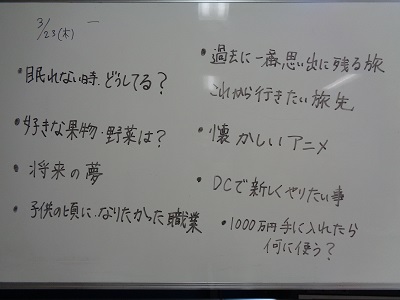 3/23(木)
・眠れない時、どうしてる？
・好きな果物・野菜は？
・将来の夢
・子供の頃に、なりたかった職業
・過去に一番、思い出に残る旅
これから行きたい旅先
・懐かしいアニメ
・DCで新しくやりたい事
・1000万円手に入れたら
何に使う？